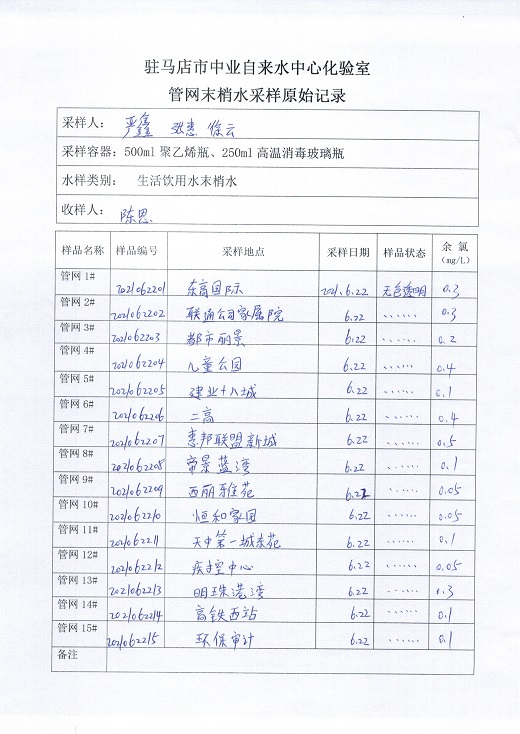 驻马店市中业自来水中心化验室
管网末梢水采样原始记录
采样人： 严鑫 惠 徐云
采样容器：500ml 聚乙烯瓶、250ml 高温消毒玻璃瓶
水样类别： 生活饮用水末梢水
收样人： 陈思
样品名称 样品编号 采样地点 采样日期 样品状态 余 氯（mg/L）
管网 1# 2021062201 东高国际 2021.6.22 无色透明 0.3
管网 2# 2021062202 联通公司家属院 6.22 ······ 0.3
管网 3# 2021062203 都市丽景 6.22 ······ 0.2
管网 4# 2021062204 儿童公园 6.22 ······ 0.4
管网 5# 2021062205 建业十八城 6.22 ······ 0.1
管网 6# 2021062206 二高 6.22 ······ 0.4
管网 7# 2021062207 惠邦联盟新城 6.22 ······ 0.5
管网 8# 2021062208 帝景蓝湾 6.22 ······ 0.1
管网 9# 2021062209 西丽雅苑 6.22 ······ 0.05
管网 10# 2021062210 恒和家园 6.22 ······ 0.05
管网 11# 2021062211 天中第一城东苑 6.22 ······ 0.1
管网 12# 2021062212 疾控中心 6.22 ······ 0.05
管网 13# 2021062213 明珠港湾 6.22 ······ 0.3
管网 14# 2021062214 高铁西站 6.22 ······ 0.1
管网 15# 2021062215 环保审计 6.22 ······ 0.1
备注